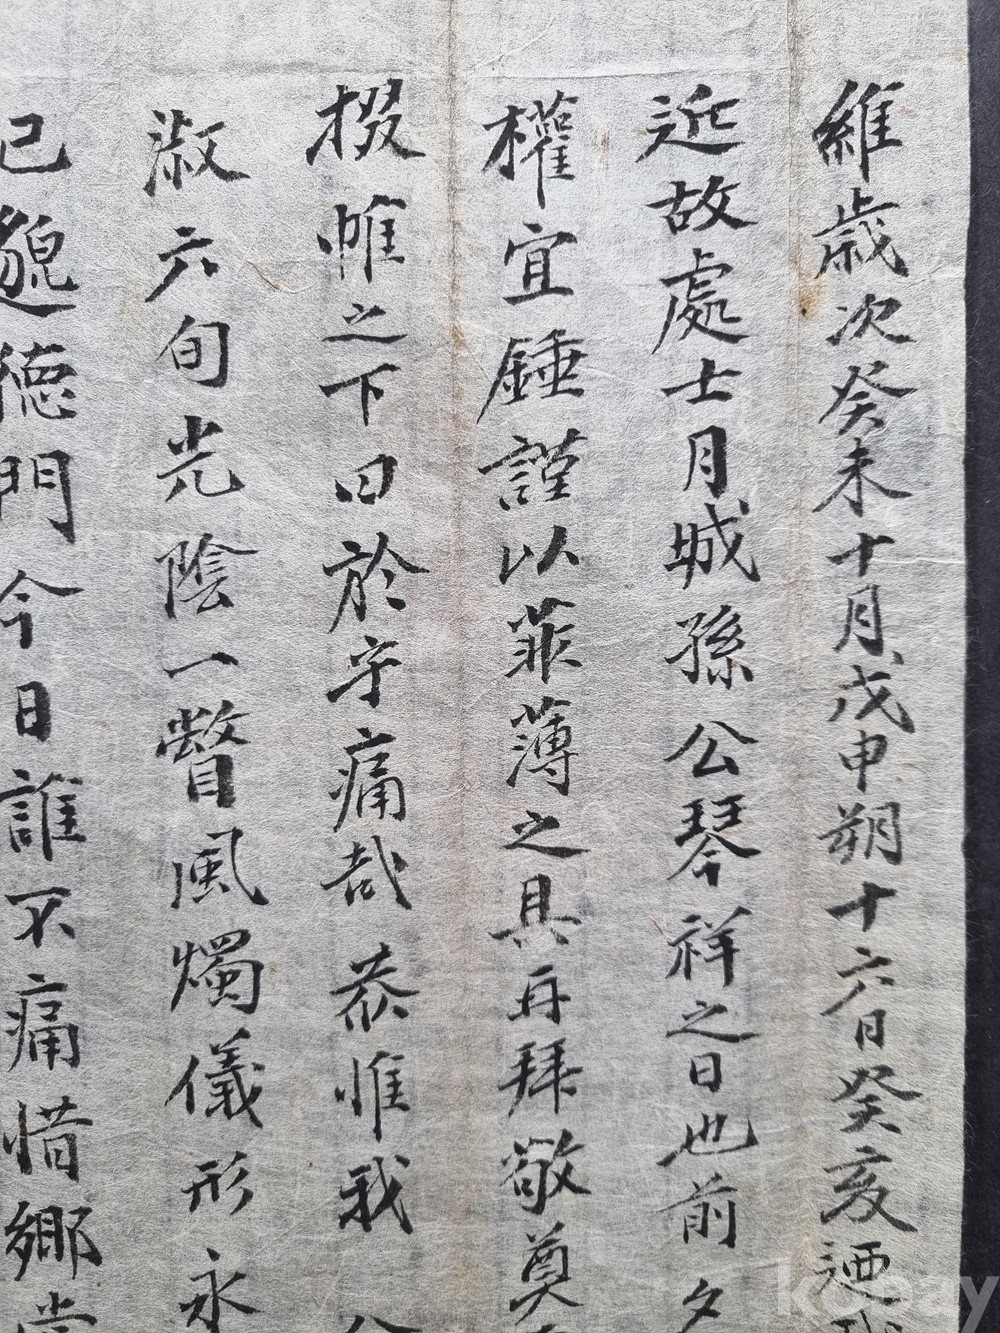 維歲次癸未十月戊申朔十六日癸亥迺我
近故處士月城孫公琴祥之日也前夕
權宜錘謹以菲薄之具再拜敬奠
掇帷之下曰於乎痛哉恭惟我公
淑六旬光陰一瞥風燭儀形永
已邈德門今日誰不痛惜鄉堂
kobay